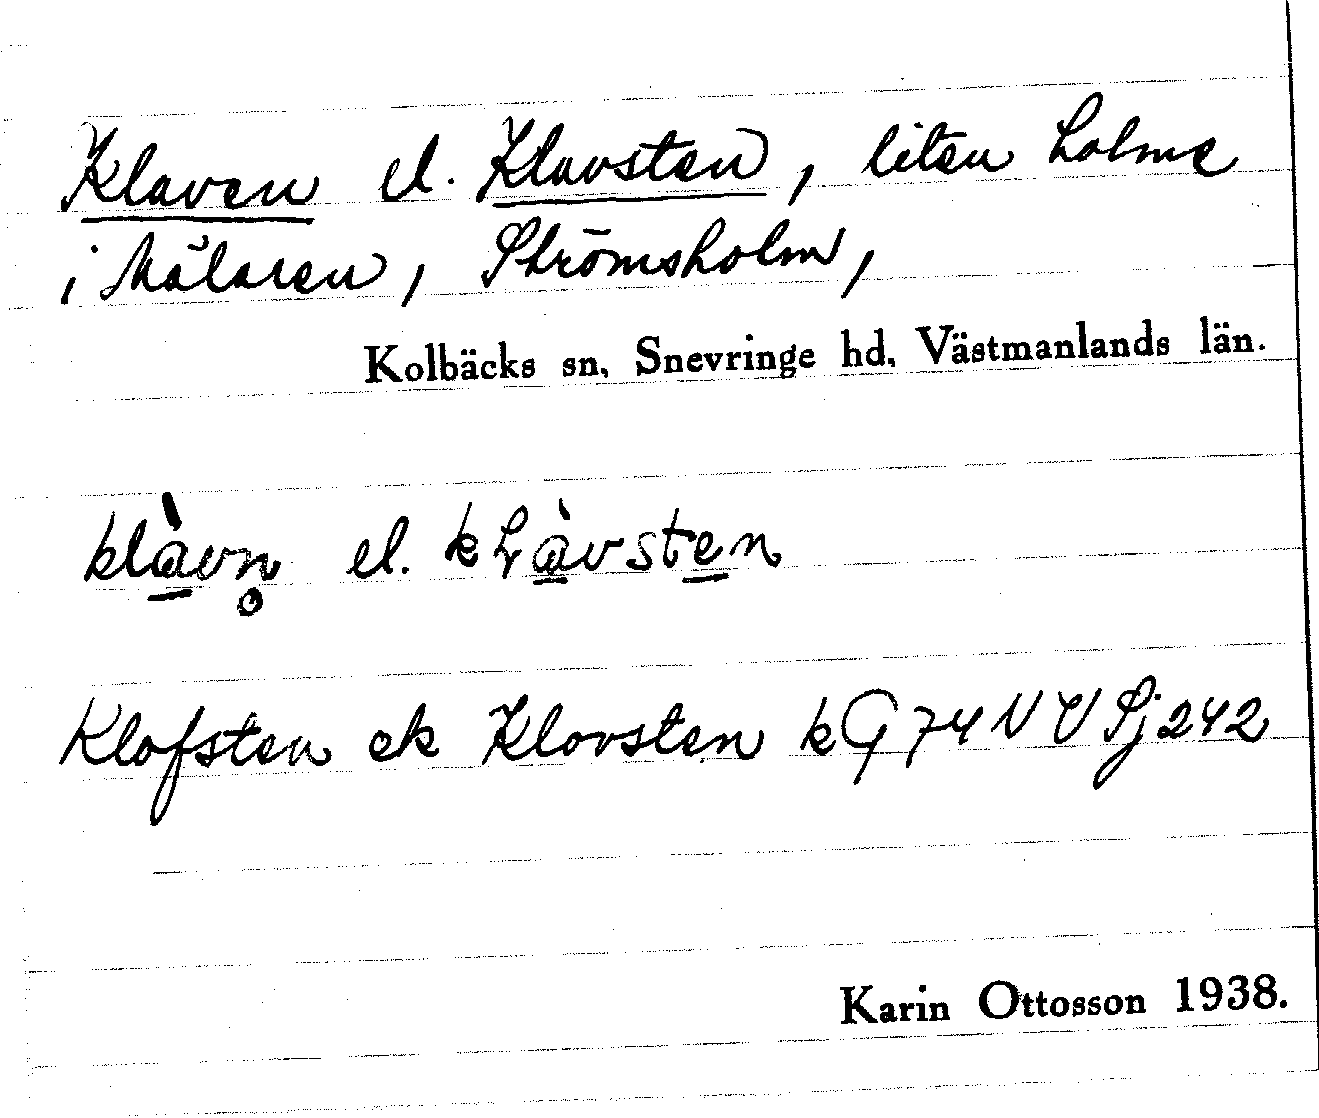 Klaven el. Klavsten, liten holme
i Mälaren, Strömsholm,
Kolbäcks sn, Snevringe hd, Västmanlands län.
klàvn̥ el. kɽàvsten
Klofsten ek Klovsten kG 74 NV Sj 242
Karin Ottosson 1938.